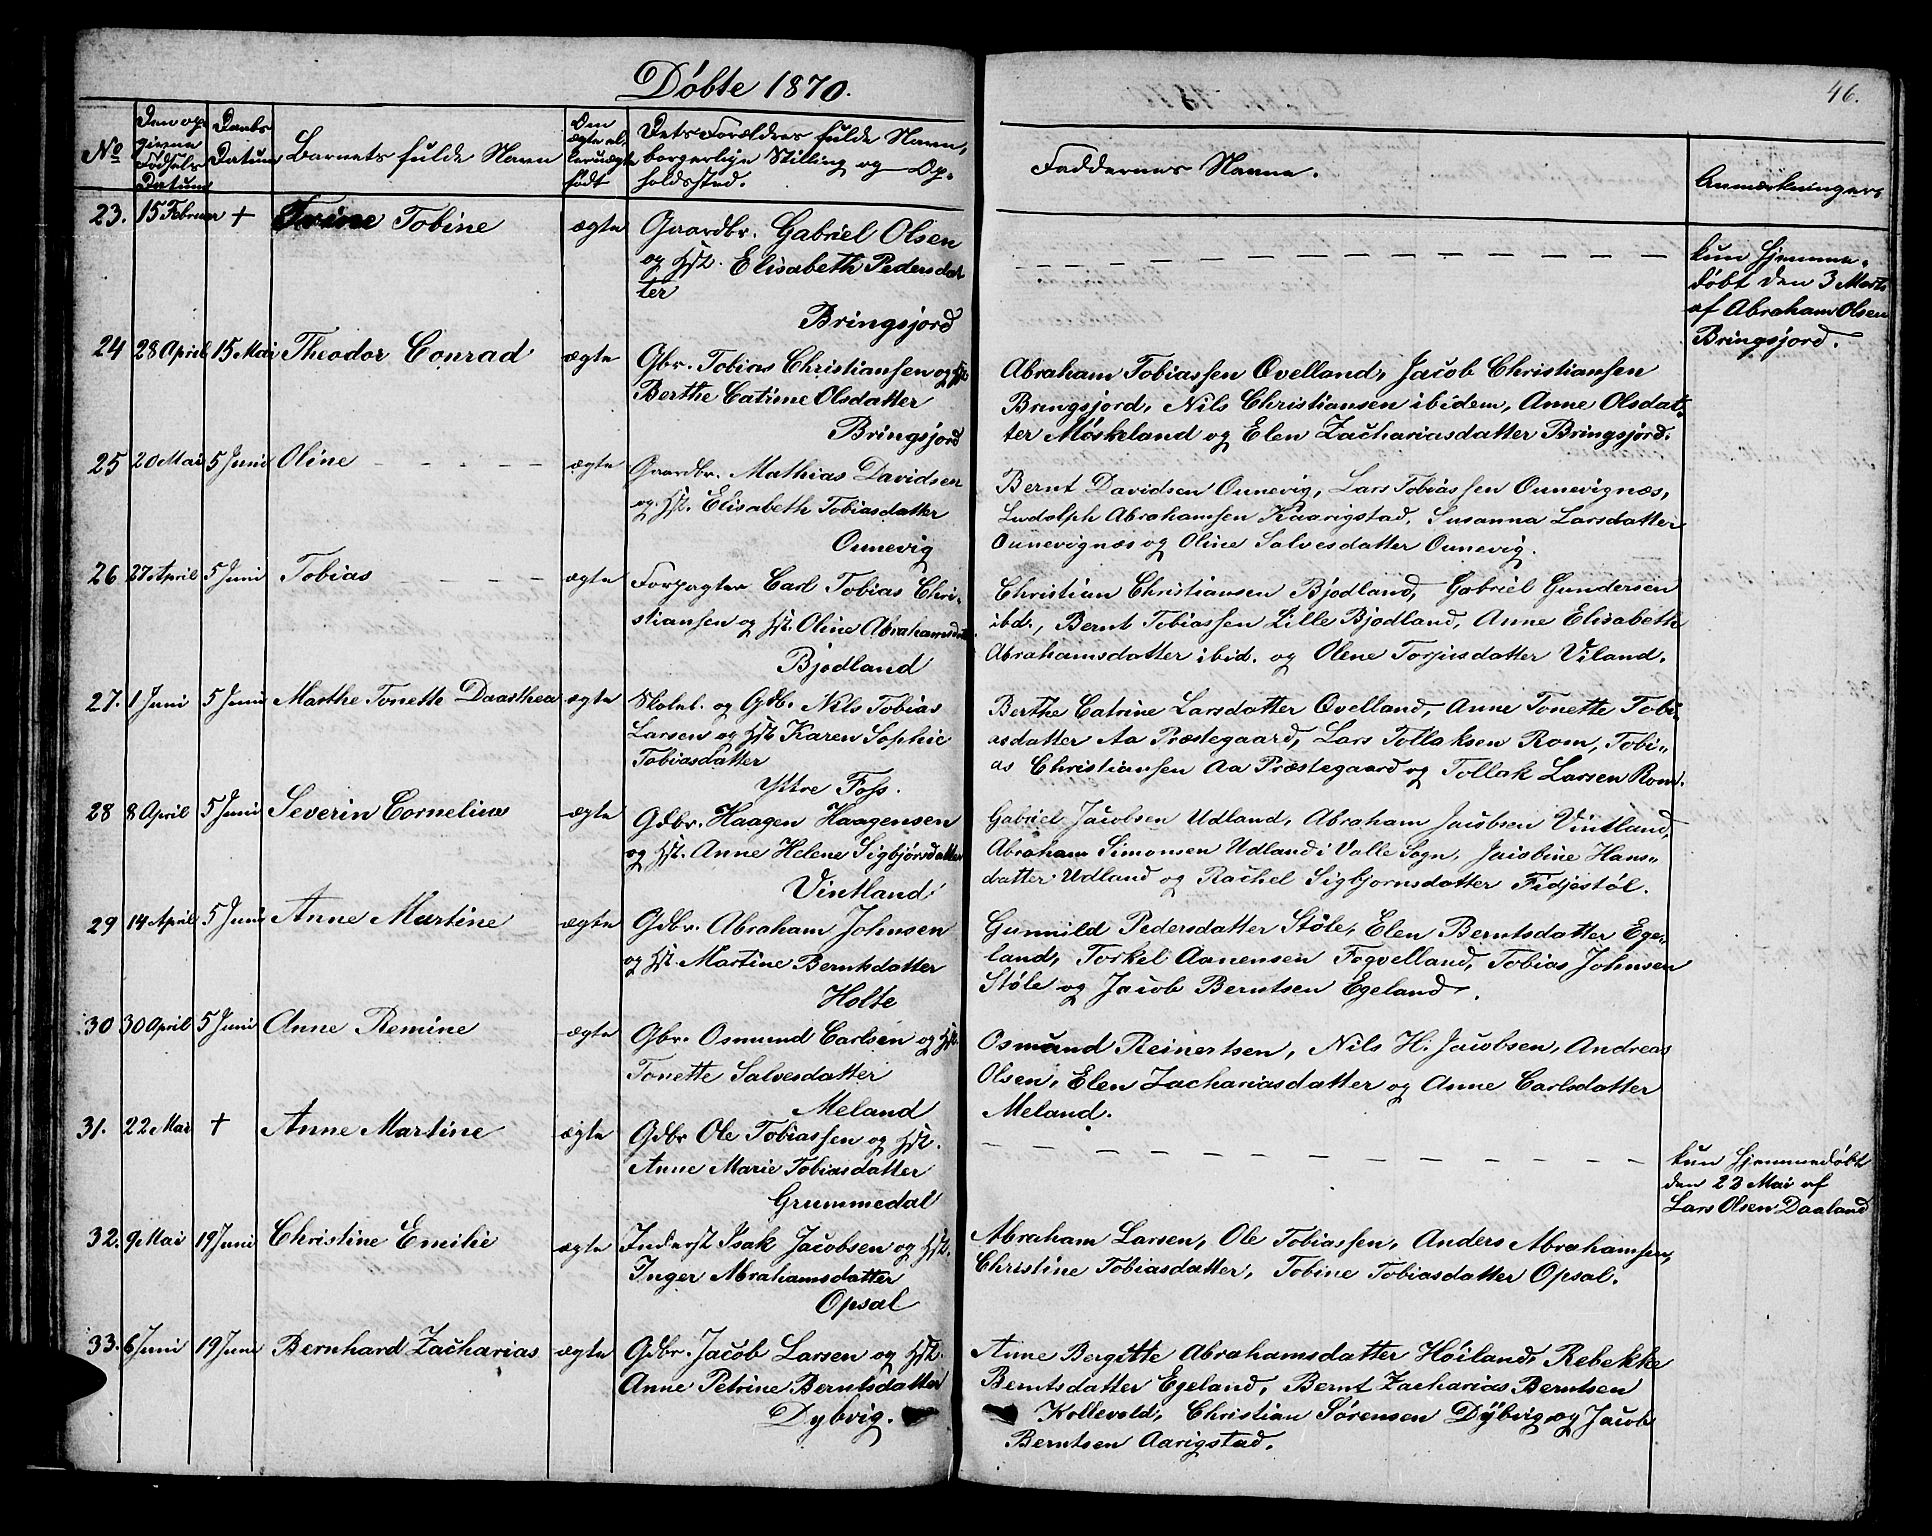 Døbte 1870.
46.
No
Den op-
givne
Fødsels
Datum
Daabs
Datum
Barnets fulde Navn
Den
ægte el-
ler uægte
født
Dets Forældres fulde Navn,
borgerlige Stilling og Op-
holdssted.
Faddernes Navne.
Anmærkninger.
23. 15 Februar + Tobine ægte Gaardbr. Gabriel Olsen
og Hst. Elisabeth Pedersdat
ter
Bringsjord
kun Hjemme-
døbt den 3 Marts
af Abraham Olsen
Bringsjord.
24 28 April 15 Mai Theodor Conrad ægte Gbr. Tobias Christiansen og Hst.
Berthe Catrine Olsdatter
Bringsjord
Abraham Tobiassen Ovelland, Jacob Christiansen
Bringsjord, Nils Christiansen ibidem, Anne Olsdat-
ter Møskeland og Elen Zachariasdatter Bringsjord.
25 20 Mai 5 Juni Oline - - - - - ægte Gaardbr. Mathias Davidsen
og Hst. Elisabeth Tobiasdatter
Ounevig
Bernt Davidsen Ounevig, Lars Tobiassen Ounevignæs,
Ludolph Abrahamsen Kaarigstad, Susanna Larsdatter
Ounevignæs og Oline Salvesdatter Ounevig.
26 27 April 5 Juni Tobias - - - - - ægte Forpagter Carl Tobias Chri-
stiansen og Hst. Oline Abrahamsdatt
Bjodland
Christian Christiansen Bjodland, Gabriel Gundersen
ibd., Bernt Tobiassen Lille Bjodland, Anne Elisabeth
Abrahamsdatter ibid. og Olene Torjusdatter Viland.
27. 1 Juni 5 Juni Marthe Tonette Daarthea ægte Skolel. og Gdb. Nils Tobias
Larsen og Hst Karen Sophie
Tobiasdatter
Yttre Foss.
Berthe Catrine Larsdatter Ovelland, Anne Tonette Tobi-
asdatter Aa Præstegaard, Lars Tollaksen Rom, Tobi-
as Christiansen Aa Præstegaard og Tollak Larsen Rom.
28 8 April 5 Juni Severin Cornelius ægte Gdbr. Haagen Haagensen
og Hst. Anne Helene Sigbjørsdatter
Vintland
Gabriel Jacobsen Udland, Abraham Jacobsen Vintland,
Abraham Simonsen Udland i Valle Sogn, Jacobine Hans-
datter Udland og Rachel Sigbjornsdatter Fidjestøl.
29 14 April 5 Juni Anne Martine ægte Gdbr. Abraham Johnsen
og Hst. Martine Berntsdatter
Holte
Gunnild Pedersdatter Støle, Elen Berntsdatter Ege-
land, Torkel Aanensen Fogvelland, Tobias Johnsen
Støle og Jacob Berntsen Egeland.
30 30 April 5 Juni Anne Remine ægte Gbr. Osmund Carlsen og Hst.
Tonette Salvesdatter
Meland
Osmund Reinertsen, Nils H. Jacobsen, Andreas
Olsen, Elen Zachariasdatter og Anne Carlsdatter
Meland.
31. 22 Mai + Anne Martine ægte Gdbr Ole Tobiassen og Hst.
Anne Marie Tobiasdatter
Grummedal
kun Hjemmedøbt
den 22 Mai af
Lars Olsen Daaland
32. 9 Mai 19 Juni Christine Emilie ægte Inderst Isak Jacobsen og Hst.
Inger Abrahamsdatter
Opsal
Abraham Larsen, Ole Tobiassen, Anders Abrahamsen,
Christine Tobiasdatter, Tobine Tobiasdatter Opsal.
33. 6 Juni 19 Juni Bernhard Zacharias ægte Gdbr. Jacob Larsen og Hst.
Anne Petrine Berntsdatter
Dybvig.
Anne Bergitte Abrahamsdatter Høiland, Rebekke
Berntsdatter Egeland, Bernt Zacharias Berntsen
Kollevold, Christian Sørensen Dÿbvig og Jacob
Berntsen Aarigstad.